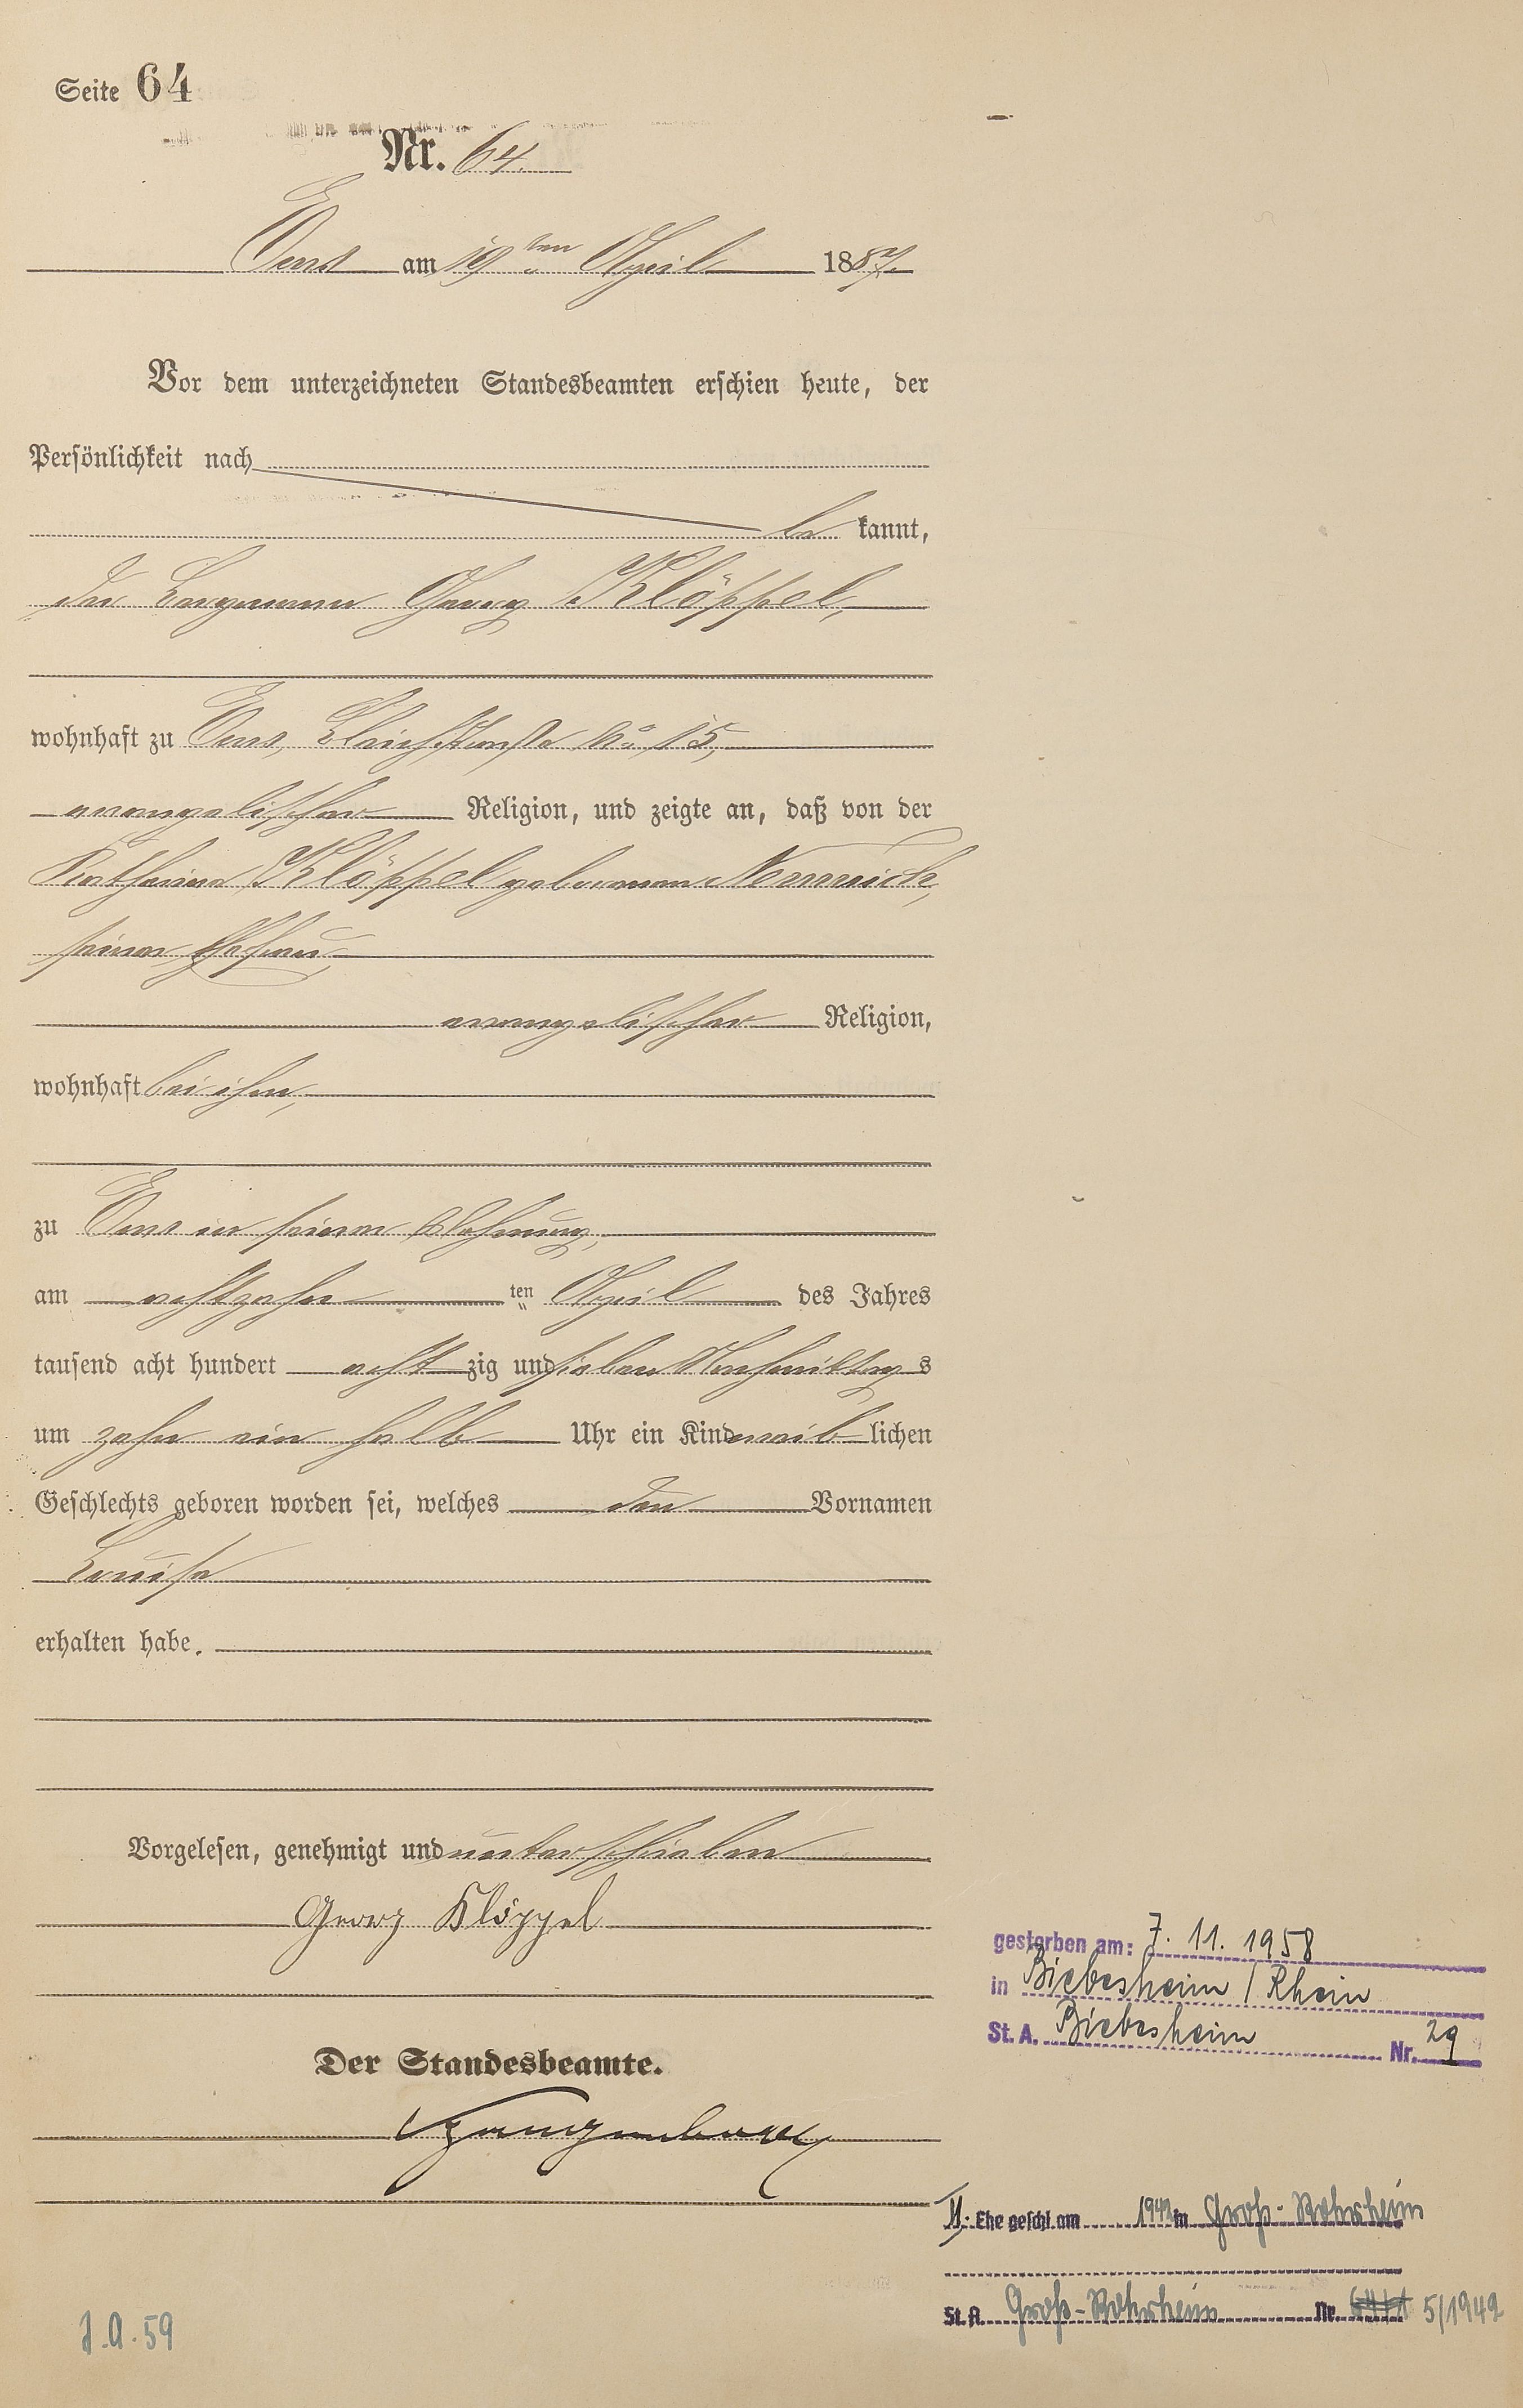 Seite 64
Nr. 64.
Ems am 19ten April 1887.
Vor dem unterzeichneten Standesbeamten erschien heute, der
Persönlichkeit nach
be kannt,
der Bergmann Georg Klöppel,
wohnhaft zu Ems, Bleichstraße No 15,
evangelischer Religion, und zeigte an, daß von der
Katharina Klöppel geborenen Nennich,
seiner Ehefrau,
evangelischer Religion,
wohnhaft bei ihm,
zu Ems in seiner Wohnung,
am achtzehn ten April des Jahres
tausend acht hundert acht zig und sieben Nachmittag s
um zehn ein halb Uhr ein Kind weib lichen
Geschlechts geboren worden sei, welches den Vornamen
Louise
erhalten habe.
Vorgelesen, genehmigt und unterschrieben
Georg Klöppel
Der Standesbeamte.
gestorben am: 7. 11. 1958
in Biebesheim / Rhein
St. A. Biebesheim Nr. 29
II. Ehe geschl. am 1942 in Groß-Rohrheim
St. A. Groß-Rohrheim Nr. 5/1942
J.A. 59